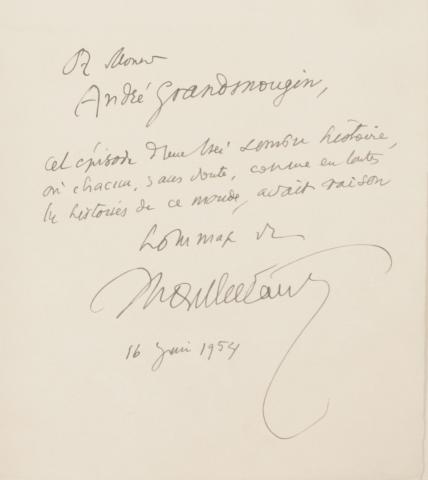 à Monsieur
André Grandmougin,
cet épisode d'une très sombre histoire,
où chacun, sans doute, comme en toutes
les histoires de ce monde, avait raison
hommage de
Montherlant
16 juin 1954